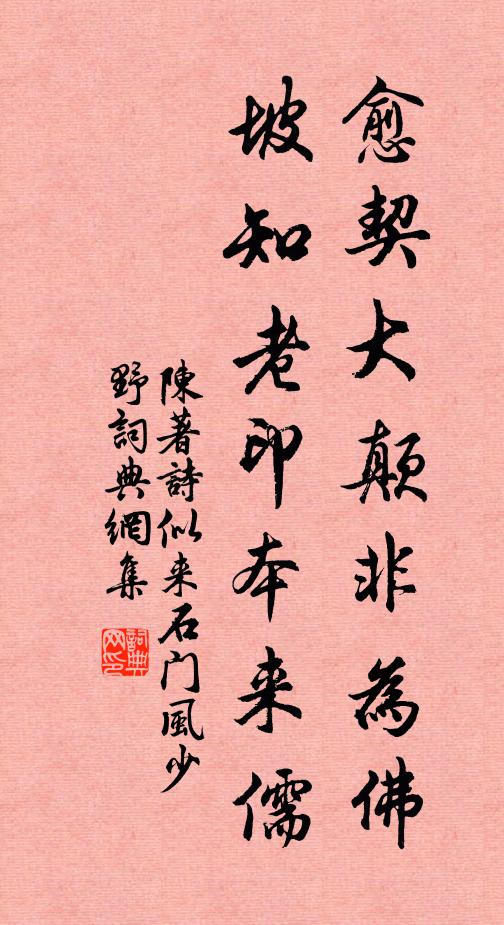 愈契大颠非為佛
坡知老印本来儒
陳著詩似来石门風少
野詞典網集
詞典网印